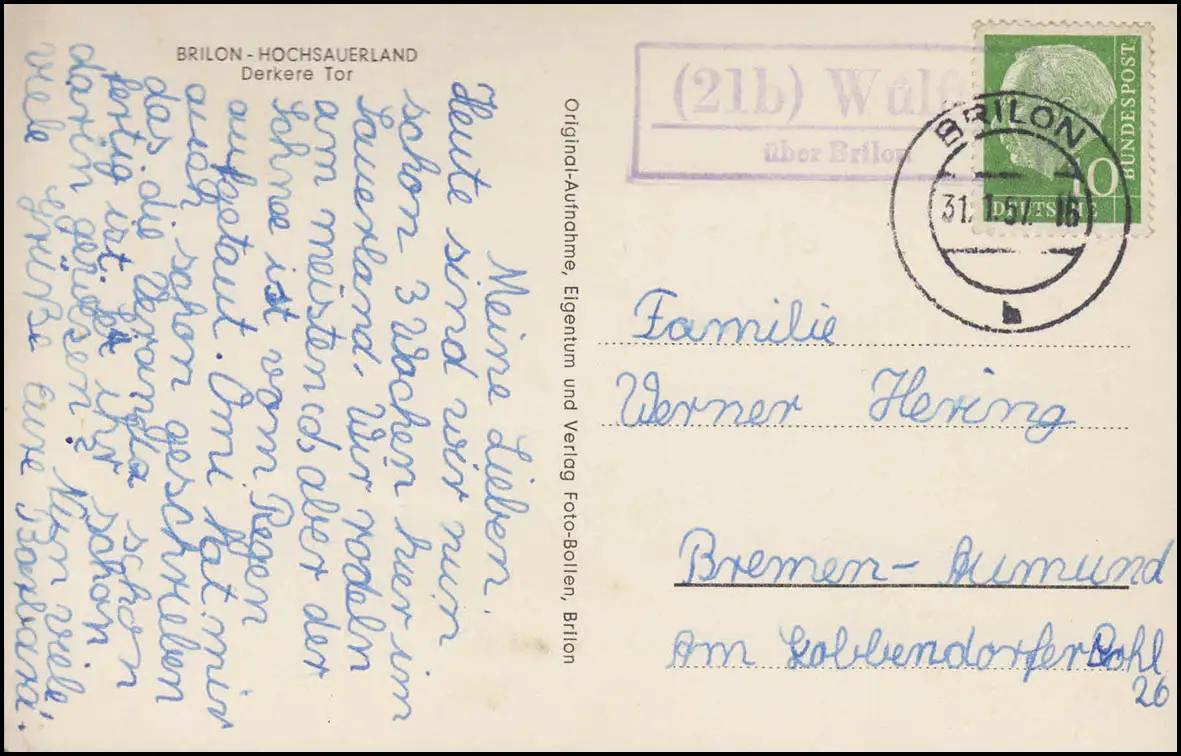 BRILON - HOCHSAUERLAND
Derkere Tor
Meine Lieben.
Heute sind wir nun
schon 3 Wochen hier im
Sauerland. Wir rodeln
am meisten, aber der
Schnee ist vom Regen
aufgetaut. Omi hat mir
auch schon geschrieben
das die Veranda schon
fertig ist. ihr schon
darin gewesen? Nun viele
viele Grüße eure Barbara.
Original-Aufnahme, Eigentum und Verlag Foto-Bollen, Brilon
(21b)
über Brilon
BRILON
31.1.57.-16
b
DEUTSCHE
BUNDESPOST
10
Familie
Werner Hering
Bremen-Aumund
Am Lobbendorfer Pohl
26